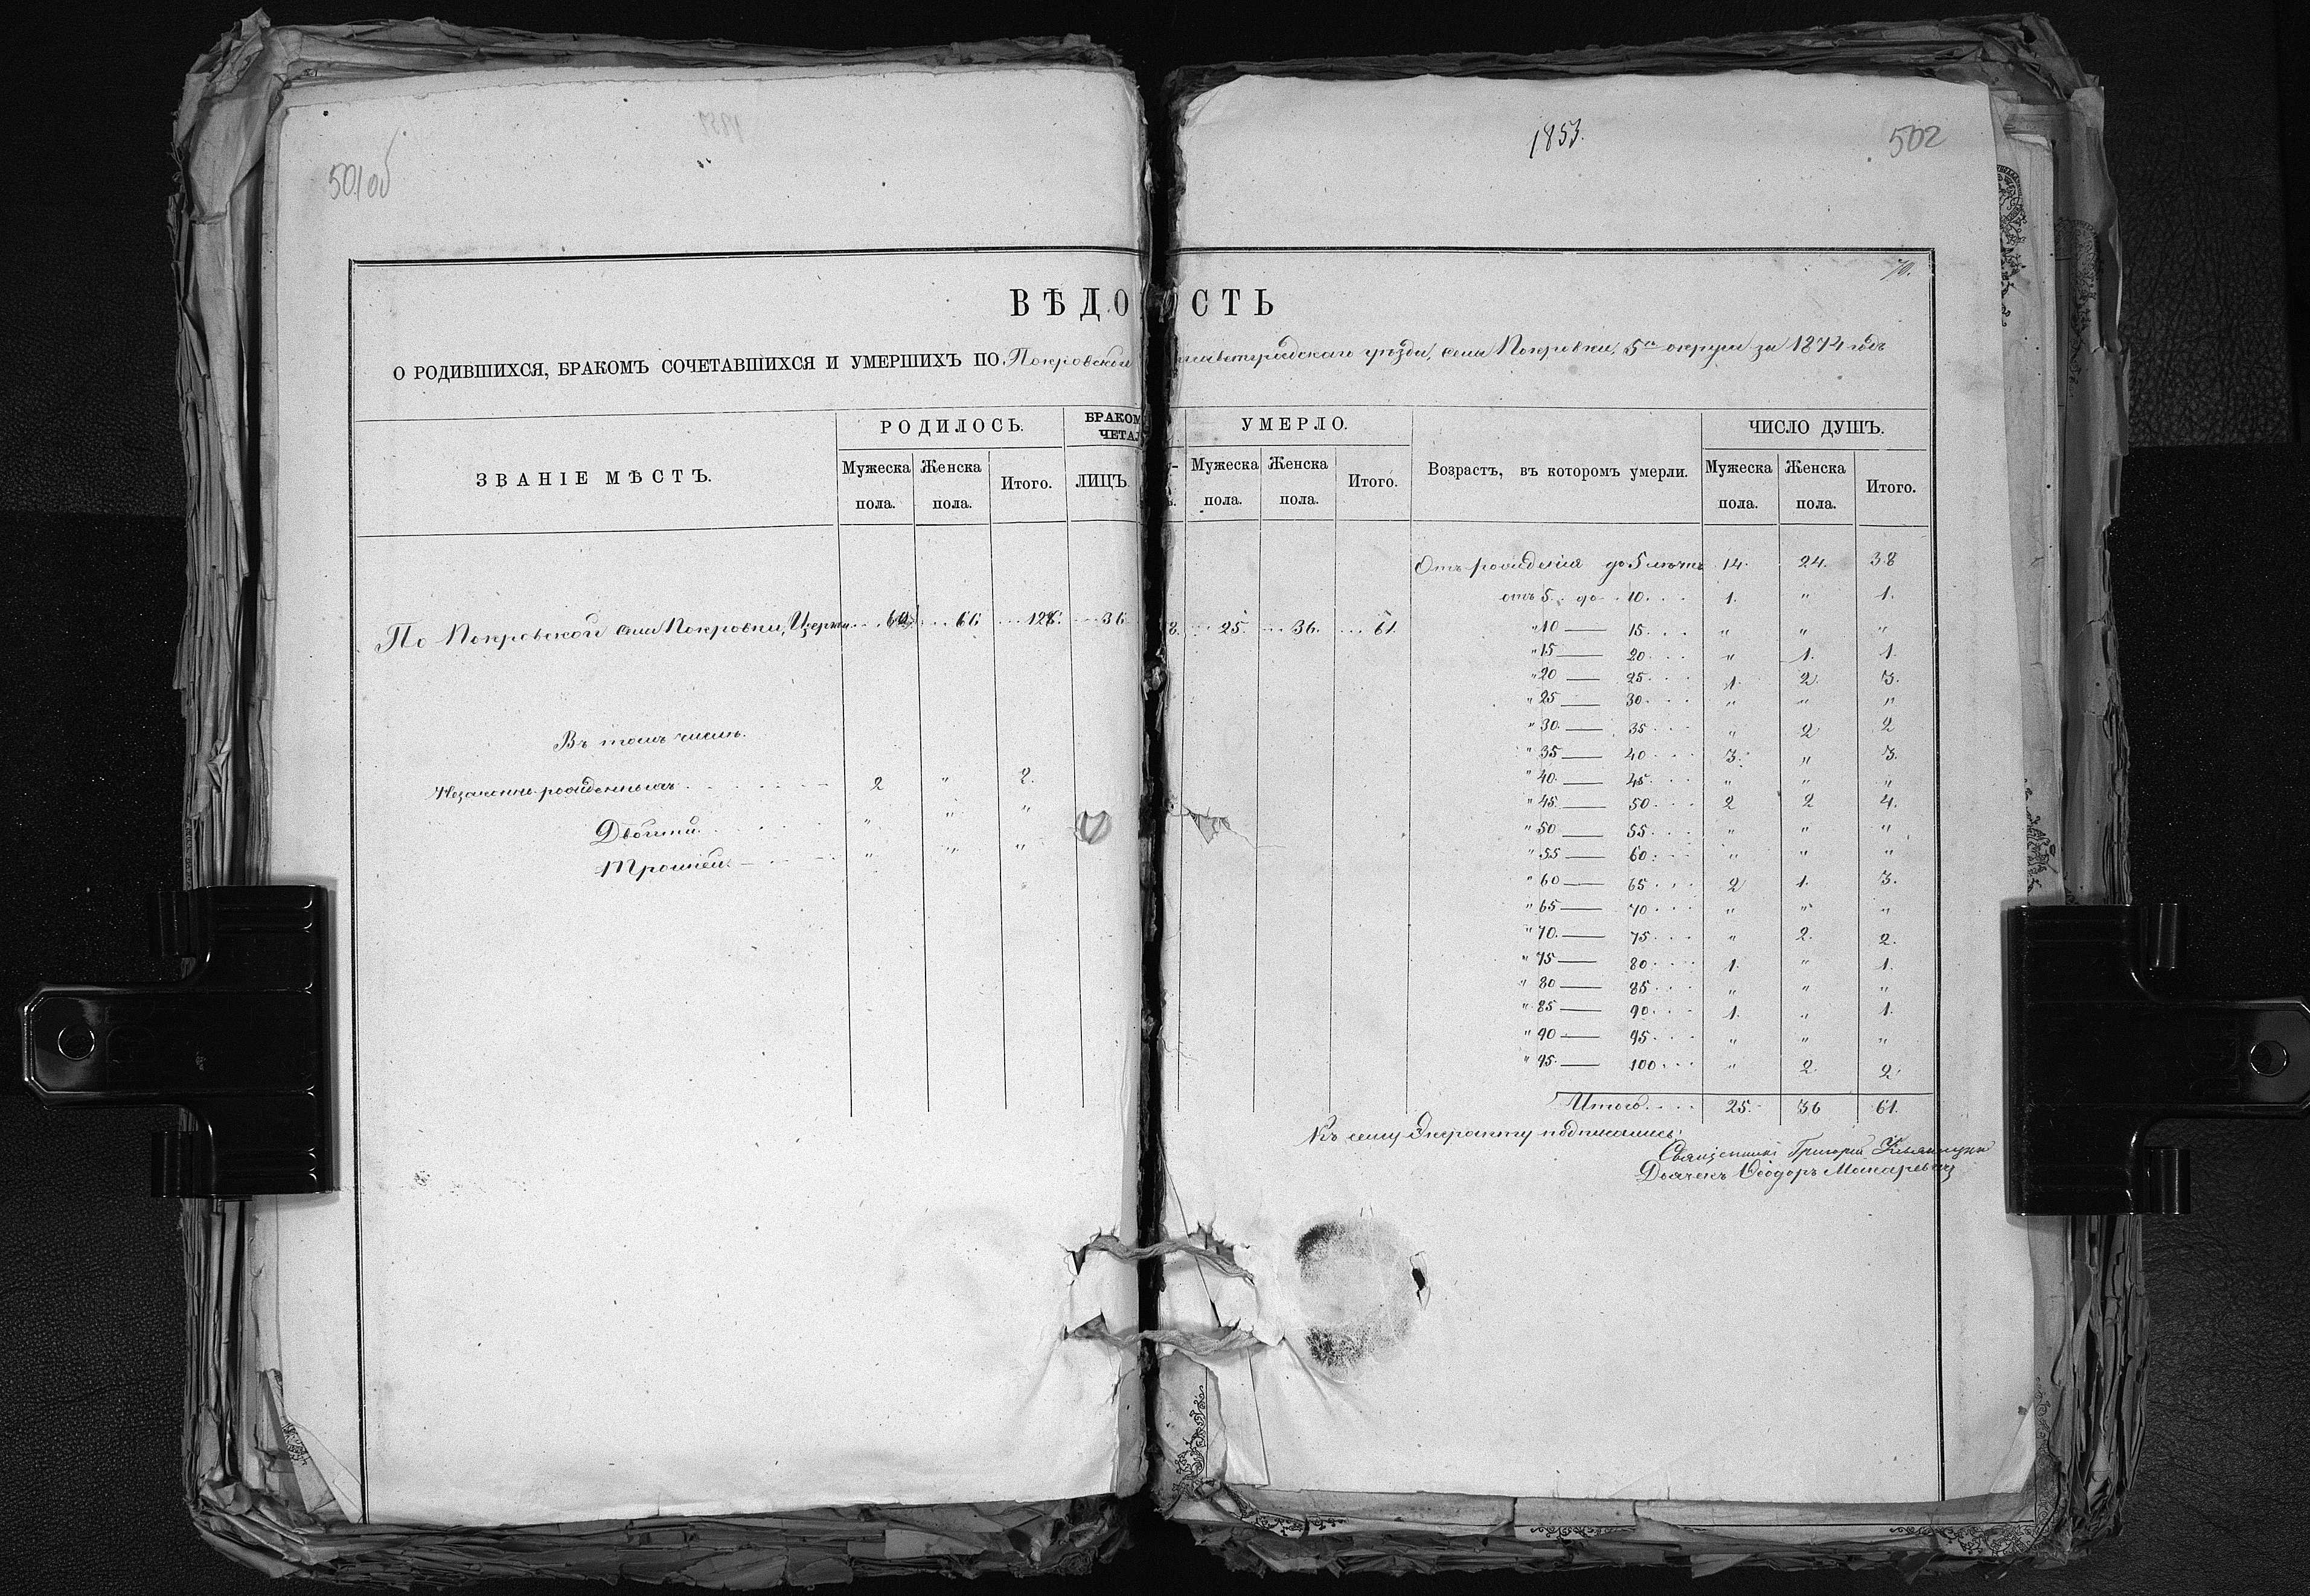 501об
1853.
502
70.
ВѢДО СТЬ
О РОДИВШИХСЯ, БРАКОМЪ СОЧЕТАВШИХСЯ И УМЕРШИХЪ ПО Покровской уѣзда, села Покровки, 5го округа за 1874 годъ
ЗВАНІЕ МѢСТЪ.
РОДИЛОСЬ.
Мужеска пола.
Женска пола.
Итого.
БРАКОМ
ЧЕТАЛ
ЛИЦЪ.
УМЕРЛО.
Мужеска пола.
Женска пола.
Итого.
Возрастъ, въ которомъ умерли.
ЧИСЛО ДУШЪ.
Мужеска пола.
Женска пола.
Итого.
По Покровской села Покровки, Церкви 66 128. 36 8. 25. 36. 61.
Въ томъ числѣ.
Незаконно-рожденныхъ 2 " 2.
Двойни " " "
Тройней " " "
Отъ рожденія до 5 лѣтъ 14. 24. 38
отъ 5. до 10. 1. " 1.
" 10 — 15. " " "
" 15 — 20. " 1. 1.
" 20 — 25. 1. 2. 3.
" 25 — 30. " " "
" 30. — 35. " 2 2
" 35 — 40. 3. " 3.
" 40. — 45. " " "
" 45. — 50. 2 2 4.
" 50 — 55. " " "
" 55 — 60. " " "
" 60 — 65. 2 1. 3.
" 65 — 70. " " "
" 70. — 75. " 2. 2.
" 75 — 80. 1. " 1.
" 80 — 85. " " "
" 85 — 90. 1. " 1.
" 90 — 95. " " "
" 95. — 100. " 2. 2.
Итого. 25. 36 61.
Къ сему Экстракту подписались:
Священникъ Григорій
Дьячекъ Ѳеодоръ Макаревич